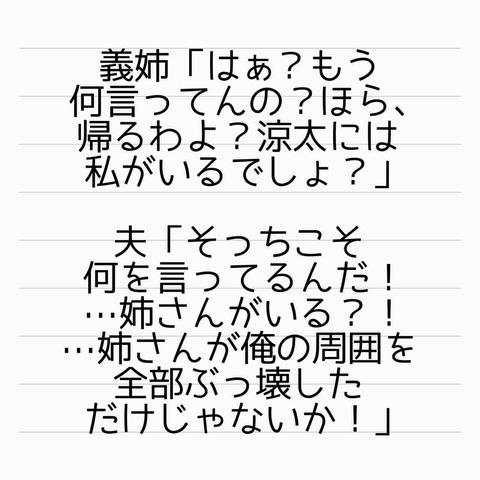 義姉「はぁ?もう
何言ってんの?ほら、
帰るわよ?涼太には
私がいるでしょ?」
夫「そっちこそ
何を言ってるんだ!
…姉さんがいる?!
…姉さんが俺の周囲を
全部ぶっ壊した
だけじゃないか!」